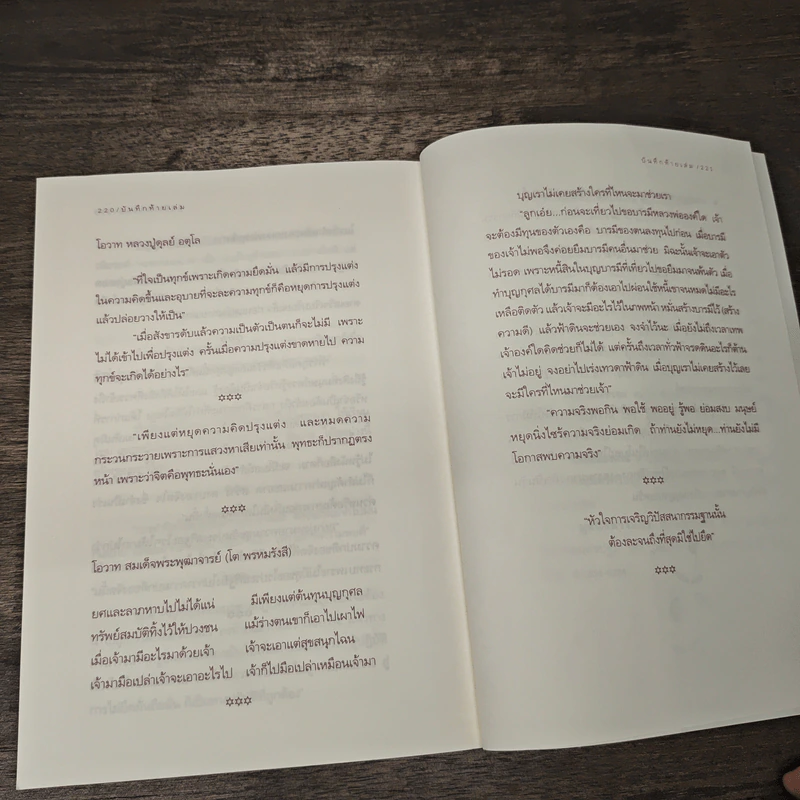 220/บันทึกท้ายเล่ม
โอวาท หลวงปู่ดูลย์ อตุโล
"ที่ใจเป็นทุกข์เพราะเกิดความยึดมั่น แล้วมีการปรุงแต่ง
ในความคิดขึ้นและอุบายที่จะละความทุกข์ก็คือหยุดการปรุงแต่ง
แล้วปล่อยวางให้เป็น"
"เมื่อสังขารดับแล้วความเป็นตัวเป็นตนก็จะไม่มี เพราะ
ไม่ได้เข้าไปเพื่อปรุงแต่ง ครั้นเมื่อความปรุงแต่งขาดหายไป ความ
ทุกข์จะเกิดได้อย่างไร"
✡✡✡
"เพียงแต่หยุดความคิดปรุงแต่ง และหมดความ
กระวนกระวายเพราะการแสวงหาเสียเท่านั้น พุทธะก็ปรากฏตรง
หน้า เพราะว่าจิตคือพุทธะนั่นเอง"
✡✡✡
โอวาท สมเด็จพระพุฒาจารย์ (โต พรหมรังสี)
ยศและลาภหาบไปไม่ได้แน่ มีเพียงแต่ต้นทุนบุญกุศล
ทรัพย์สมบัติทิ้งไว้ให้ปวงชน แม้ร่างตนเขาก็เอาไปเผาไฟ
เมื่อเจ้ามามีอะไรมาด้วยเจ้า เจ้าจะเอาแต่สุขสนุกไฉน
เจ้ามามือเปล่าเจ้าจะเอาอะไรไป เจ้าก็ไปมือเปล่าเหมือนเจ้ามา
✡✡✡
บันทึกท้ายเล่ม /221
บุญเราไม่เคยสร้างใครที่ไหนจะมาช่วยเรา
"ลูกเอ๋ย...ก่อนจะเที่ยวไปขอบารมีหลวงพ่อองค์ใด เจ้า
จะต้องมีทุนของตัวเองคือ บารมีของตนลงทุนไปก่อน เมื่อบารมี
ของเจ้าไม่พอจึงค่อยยืมบารมีคนอื่นมาช่วย มิฉะนั้นเจ้าจะเอาตัว
ไม่รอด เพราะหนี้สินในบุญบารมีที่เที่ยวไปขอยืมมาจนพ้นตัว เมื่อ
ทำบุญกุศลได้บารมีมาก็ต้องเอาไปผ่อนใช้หนี้เขาจนหมดไม่มีอะไร
เหลือติดตัว แล้วเจ้าจะมีอะไรไว้ในภพหน้า หมั่นสร้างบารมีไว้ (สร้าง
ความดี) แล้วฟ้าดินจะช่วยเอง จงจำไว้นะ เมื่อยังไม่ถึงเวลาเทพ
เจ้าองค์ใดคิดช่วยก็ไม่ได้ แต่ครั้นถึงเวลาทั่วฟ้าจรดดินอะไรก็ต้าน
เจ้าไม่อยู่ จงอย่าไปเร่งเทวดาฟ้าดิน เมื่อบุญเราไม่เคยสร้างไว้เลย
จะมีใครที่ไหนมาช่วยเจ้า"
"ความจริงพอกิน พอใช้ พออยู่ รู้พอ ย่อมสงบ มนุษย์
หยุดนิ่งไซร้ความจริงย่อมเกิด ถ้าท่านยังไม่หยุด...ท่านยังไม่มี
โอกาสพบความจริง"
✡✡✡
"หัวใจการเจริญวิปัสสนากรรมฐานนั้น
ต้องละจนถึงที่สุดมิใช่ไปยึด"
✡✡✡